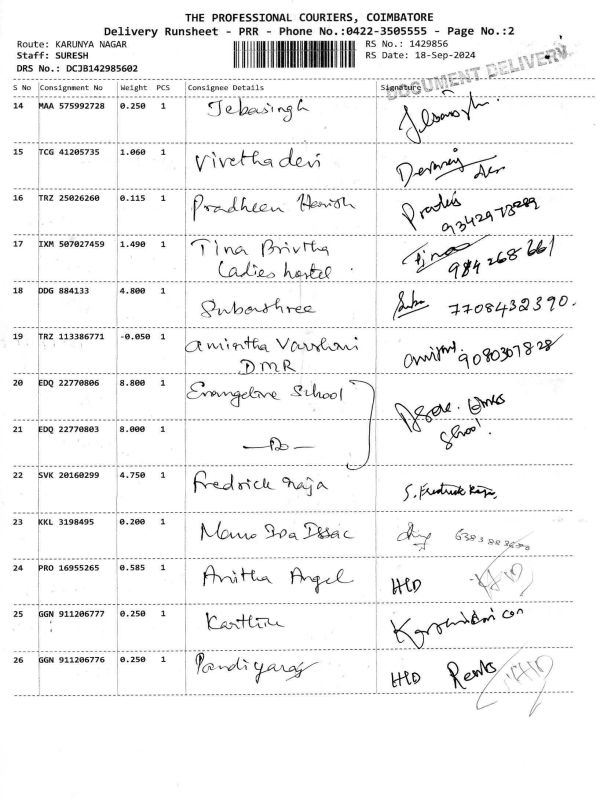 THE PROFESSIONAL COURIERS, COIMBATORE
Delivery Runsheet - PRR - Phone No.:0422-3505555 - Page No.:2
Route: KARUNYA NAGAR RS No.: 1429856
Staff: SURESH RS Date: 18-Sep-2024
DRS No.: DCJB142985602
DOCUMENT DELIVERY
S No Consignment No Weight PCS Consignee Details Signature
14 MAA 575992728 0.250 1 Jebasingh
15 TCG 41205735 1.060 1 Vivetha devi
16 TRZ 25026260 0.115 1 Pradheen Harish
9342973289
17 IXM 507027459 1.490 1 Tina Brivtha
Ladies hostel. 984268661
18 DDG 884133 4.800 1 Subarshree 7708432390.
19 TRZ 113386771 -0.050 1 Amirtha Varshini
DMR 9080307828
20 EDQ 22770806 8.800 1 Evangeline School
21 EDQ 22770803 8.000 1 —Do— School.
22 SVK 20160299 4.750 1 Fredrick raja S. Fredrick Raja
23 KKL 3198495 0.200 1 Issac
24 PRO 16955265 0.585 1 Anitha Angel H/D
25 GGN 911206777 0.250 1
26 GGN 911206776 0.250 1 Pandiyaraj H/D